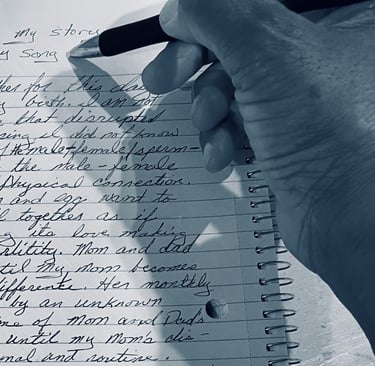 my story
y song
ther for this da
y birth. I am not
e that disrupted
sing it did not know
male-female/sperm-
the male-female
physical connection.
and egg want to
together as if
g its love making
rtility. Mom and dad
til my mom becomes
ifference. Her monthly
by an unknown
me of Mom and Dad's
until my Mom's dis-
mal and routine.